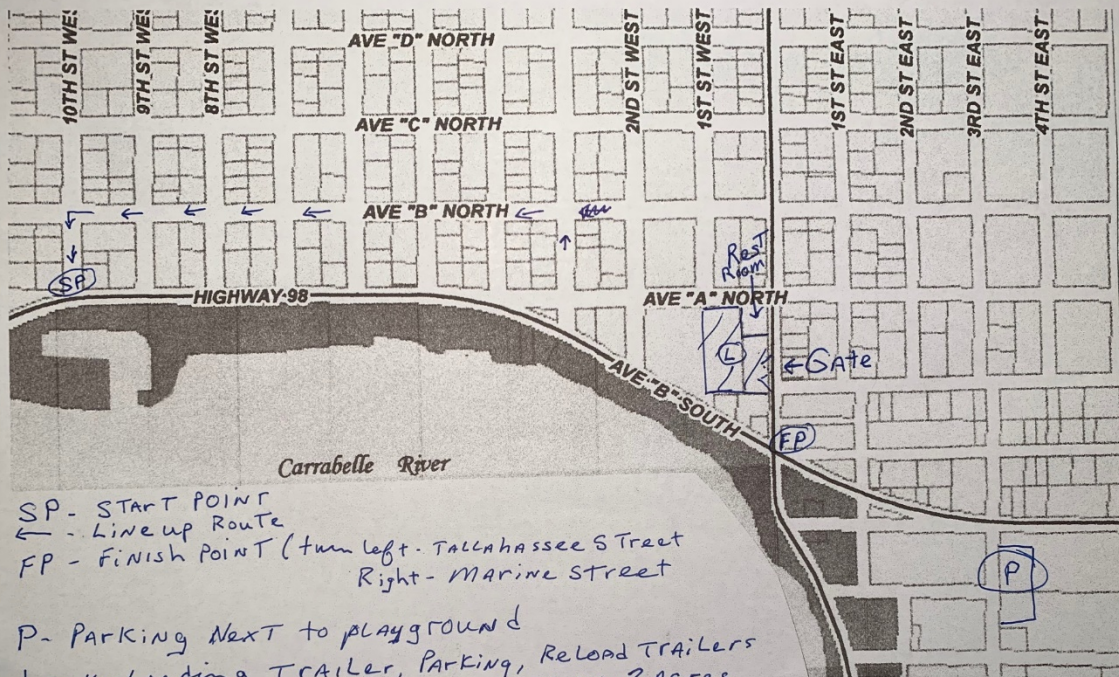 AVE "D" NORTH
10TH ST WES
9TH ST WES
8TH ST WES
2ND ST WEST
1ST ST WEST
1ST ST EAST
2ND ST EAST
3RD ST EAST
4TH ST EAST
AVE "C" NORTH
AVE "B" NORTH
Rest
Room
SP
HIGHWAY 98
AVE "A" NORTH
L
← GAte
AVE "B" SOUTH
FP
Carrabelle River
SP - START POINT
← - Line up Route
FP - FINISH POINT (turn left - TALLAHASSEE STreet
Right - MArine Street
P
P - PArking Next to plAyground
TrAiLer, PArking, ReLoad TrAiLers